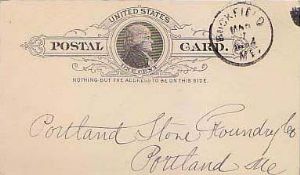 UNITED STATES
POSTAL CARD.
ONE CENT
NOTHING BUT THE ADDRESS TO BE ON THIS SIDE.
BUCKFIELD
ME.
Portland Stove Foundry Co
Portland Me